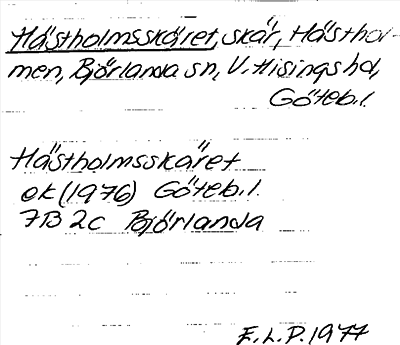 Hästholmsskäret, skär, Hästhol-
men, Björlanda sn, V. Hisings hd,
Göteb. l.
Hästholmsskäret
ek (1976) Göteb. l.
7B 2c Björlanda
E. L. P. 1977